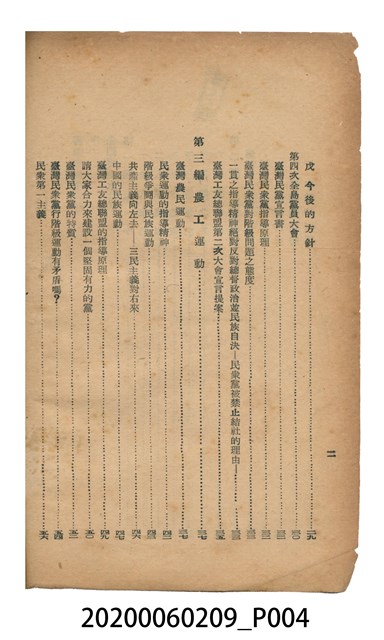 戊 今後的方針……二九
第四次全島黨員大會……三〇
臺灣民黨宣言書……三一
臺灣民衆黨指導原理……三二
臺灣民衆黨對階級問題之態度
一貫之指導精神絕對反對總督政治並民族自決—民衆黨被禁止結社的理由
臺灣工友總聯盟第二次大會宣言提案
第三編 農工運動……三七
臺灣農民運動……三七
民衆運動的指導精神
階級爭鬪與民族運動
共產主義向左去 三民主義對右來……四六
中國的民族運動……四七
臺灣工友總聯盟的指導原理……四九
請大家合力來建設一個堅固有力的黨……五〇
臺灣民衆黨的特質
臺灣民衆黨行階級運動有矛盾嗎？……五四
民衆第一主義……五六
二
20200060209_P004